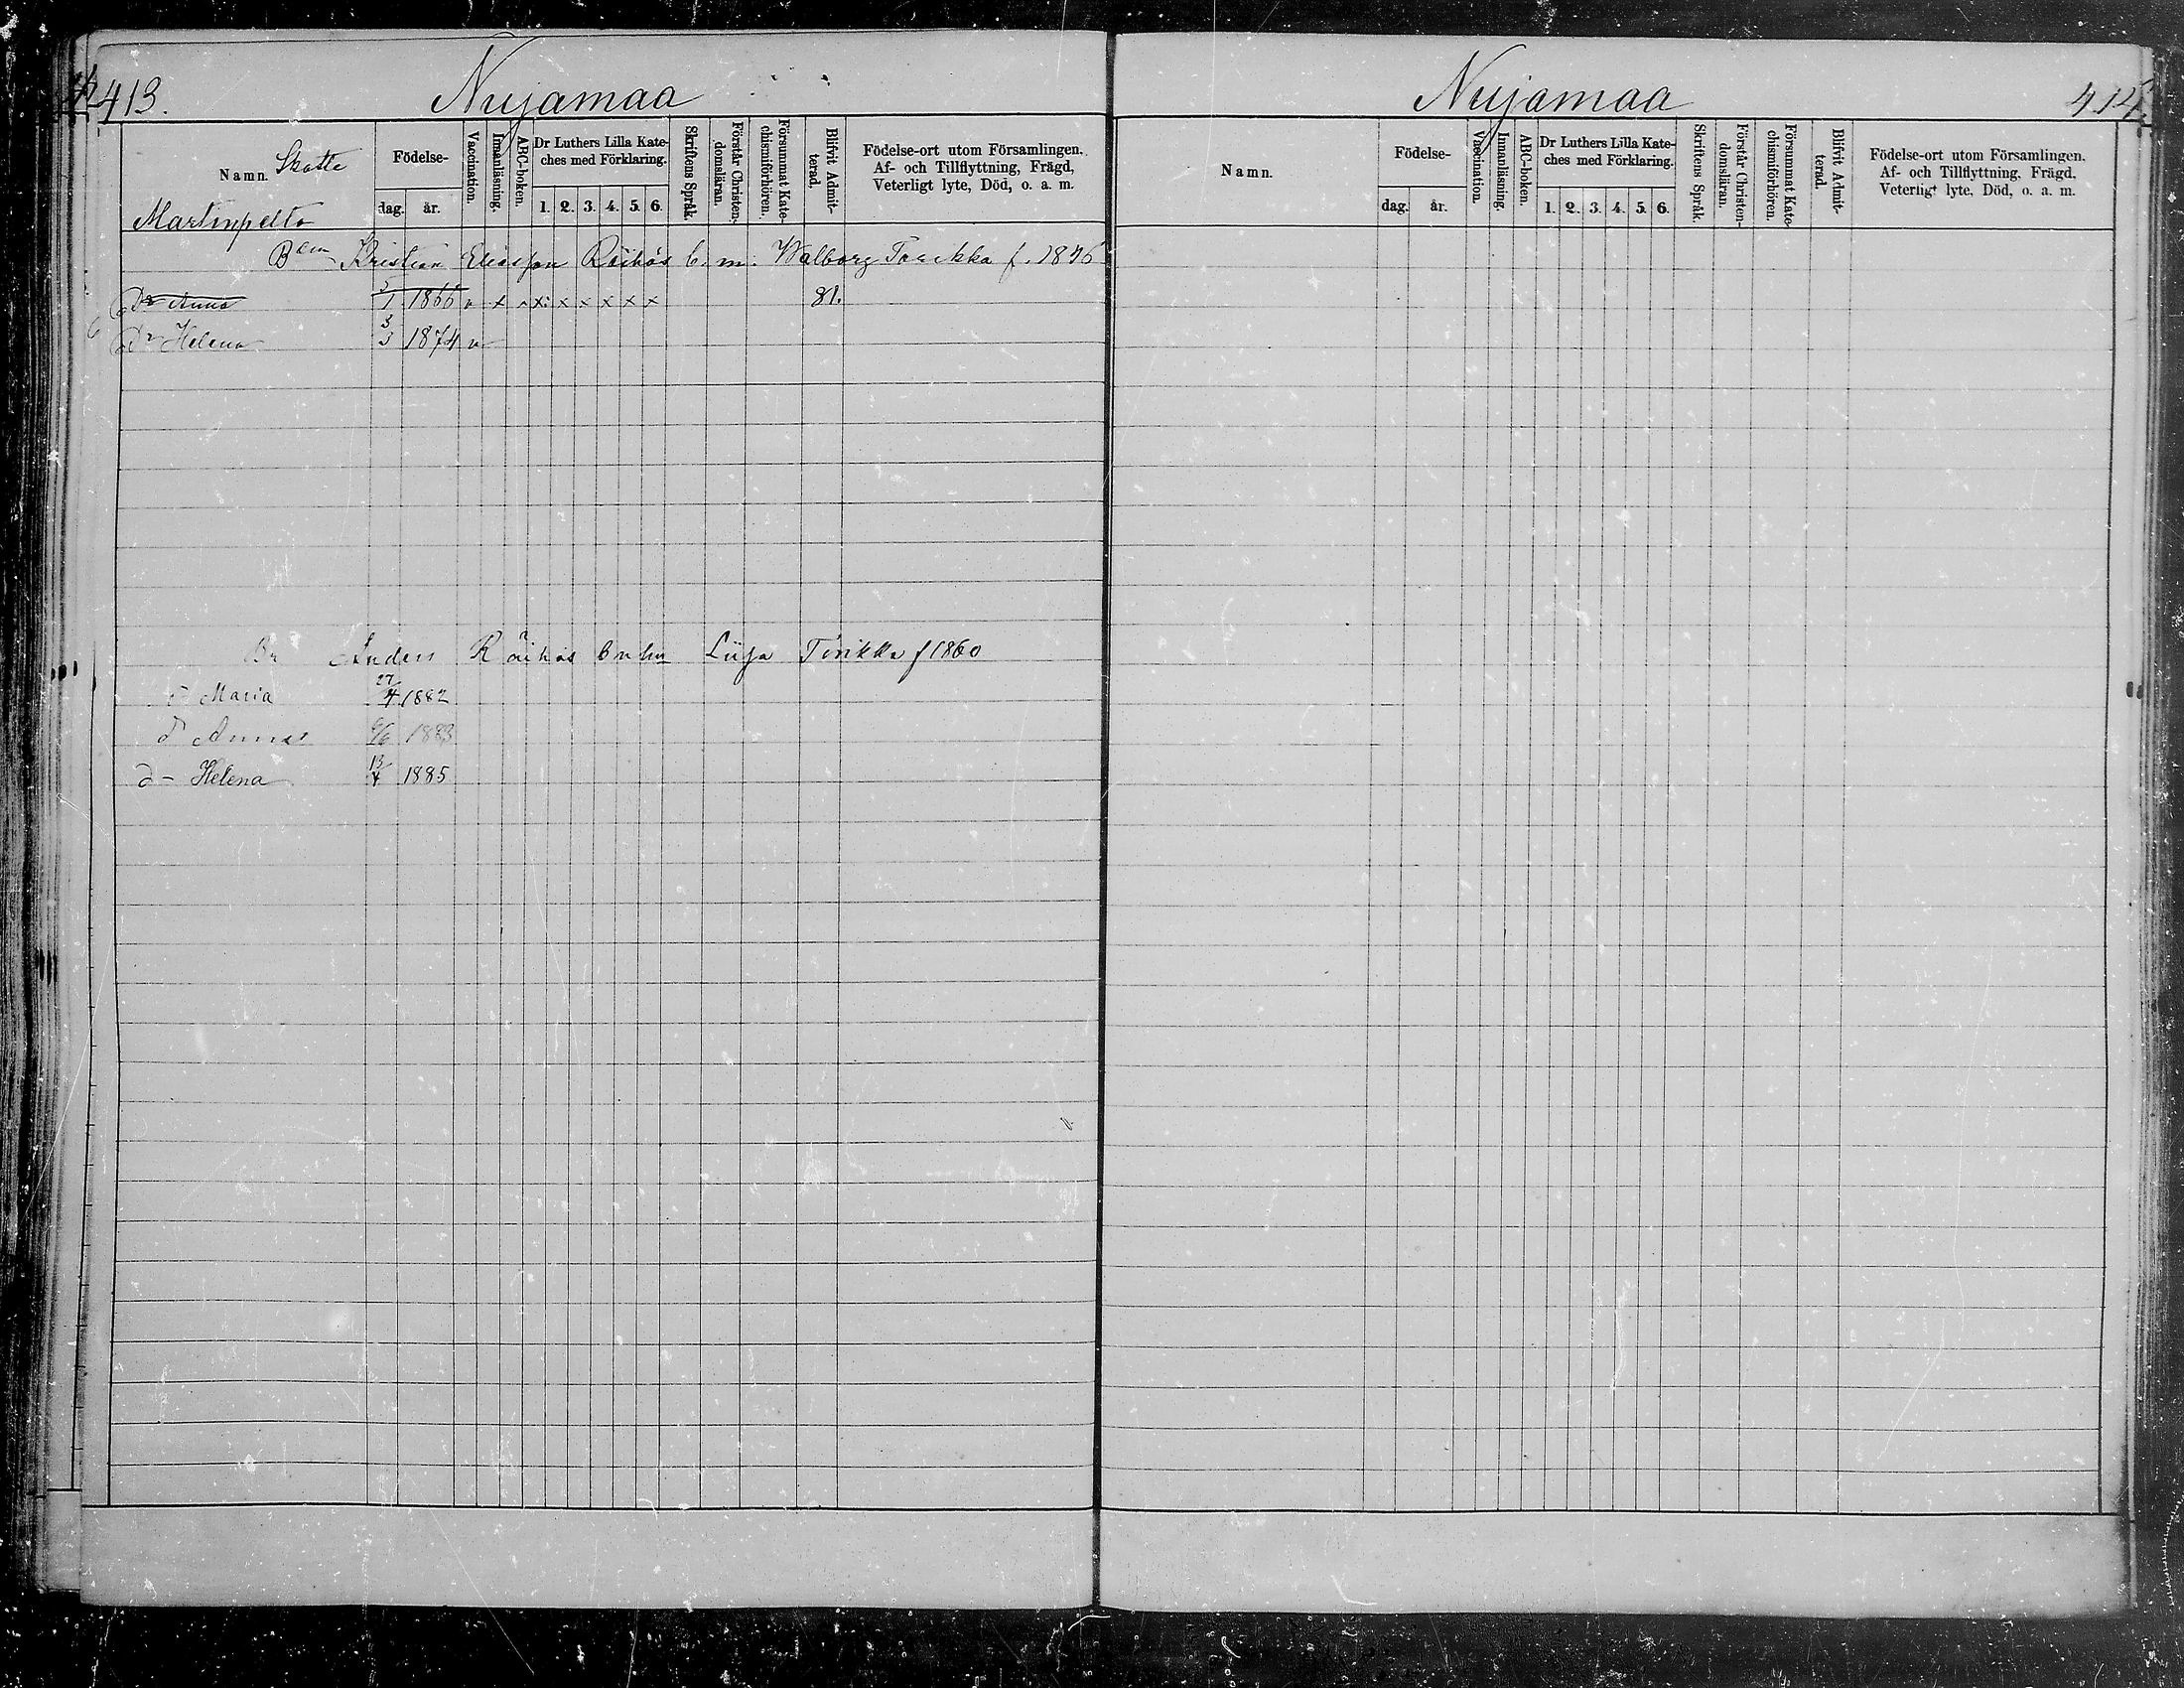 413. Nujamaa
Namn. Skatte Födelse- Vaccination. Innanläsning. ABC-boken. Dr Luthers Lilla Kate-ches med Förklaring. Skriftens Språk. Förstår Christen-domsläran. Försummat Kate-chismiförhören. Blifvit Admit-terad. Födelse-ort utom Församlingen. Af- och Tillflyttning, Frägd, Veterligt lyte, Död, o. a. m.
dag. år. 1. 2. 3. 4. 5. 6.
Martinpelto
Bdm Kristian Eliasson Räihös b. m. Walborg Torikka f. 1846
Dr Anna 3/1 1866 v x x x x x x x x 81.
Dr Helena 3/3 1874 v
Br Anders Räihös b m hu Liisa Torikka f 1860
d Maria 27/4 1882
dr Anna 6/6 1883
d - Helena 13/4 1885
Nujamaa 414.
Namn. Födelse- Vaccination. Innanläsning. ABC-boken. Dr Luthers Lilla Kate-ches med Förklaring. Skriftens Språk. Förstår Christen-domsläran. Försummat Kate-chismiförhören. Blifvit Admit-terad. Födelse-ort utom Församlingen. Af- och Tillflyttning, Frägd, Veterligt lyte, Död, o. a. m.
dag. år. 1. 2. 3. 4. 5. 6.